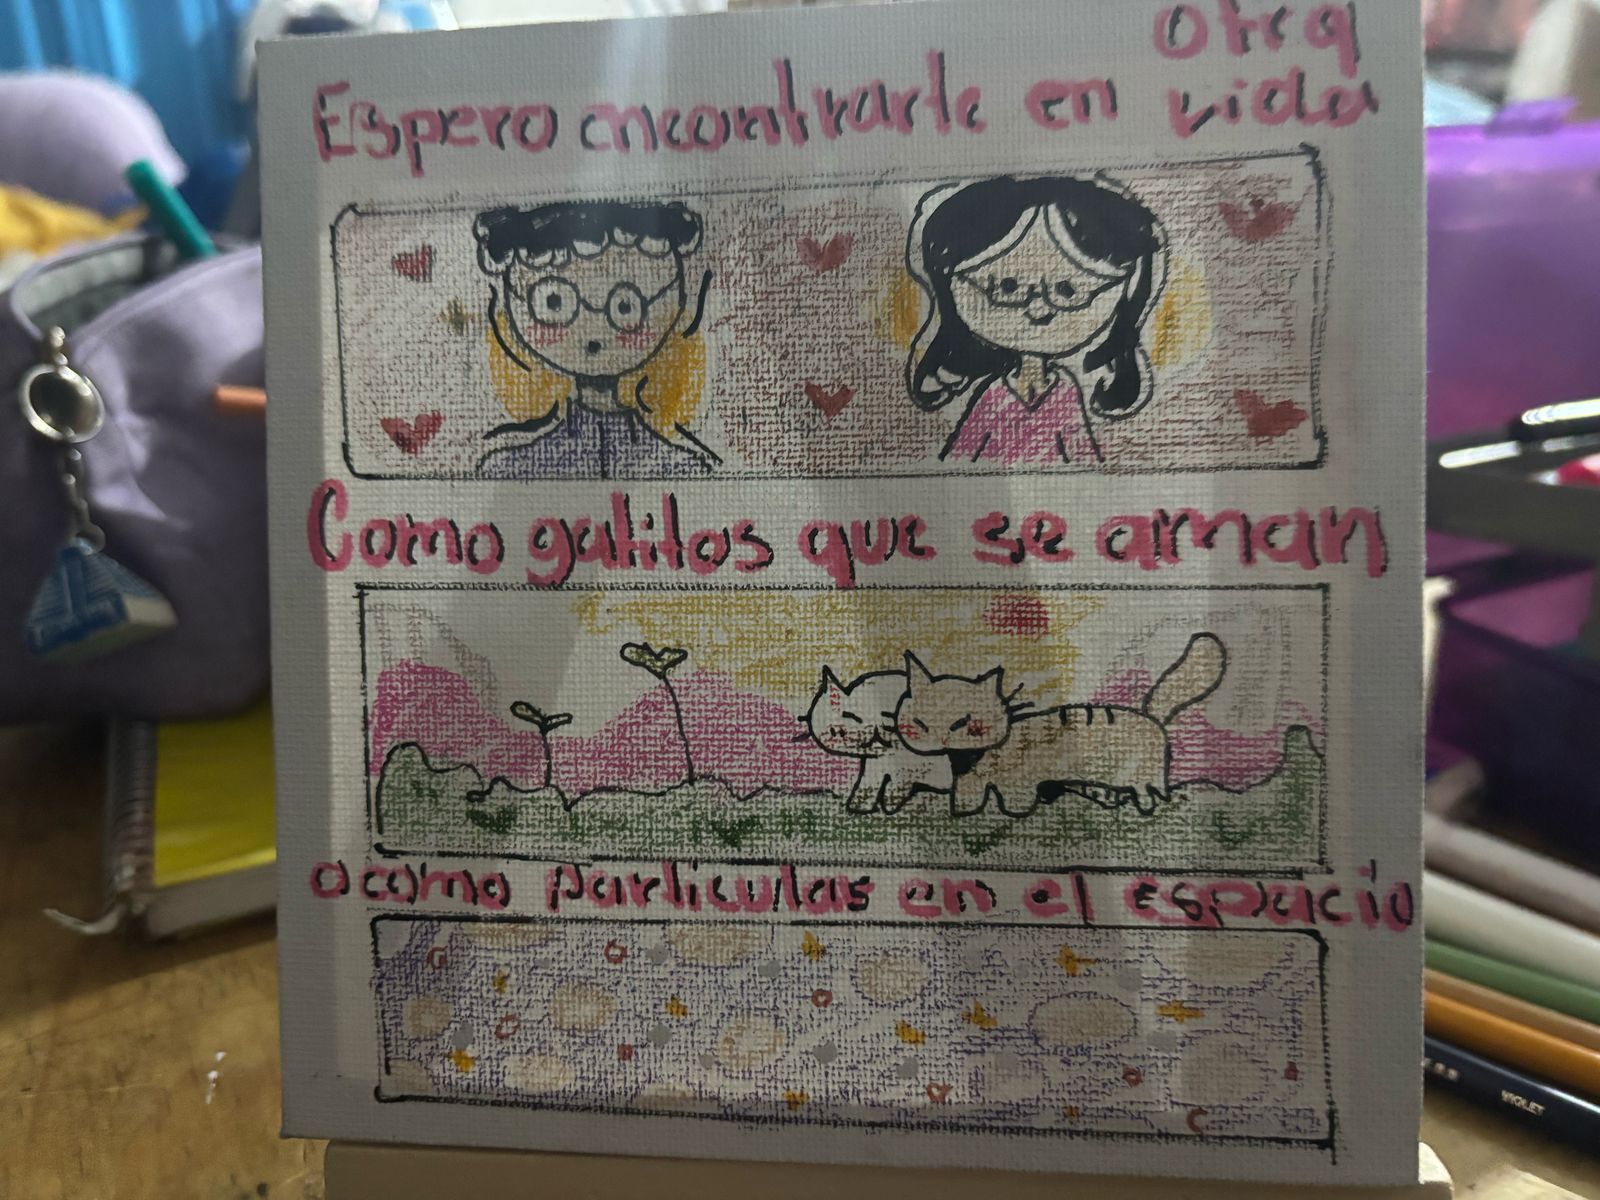 Espero encontrarte en otra vida
Como gatitos que se aman
o como particulas en el espacio
VIOLET